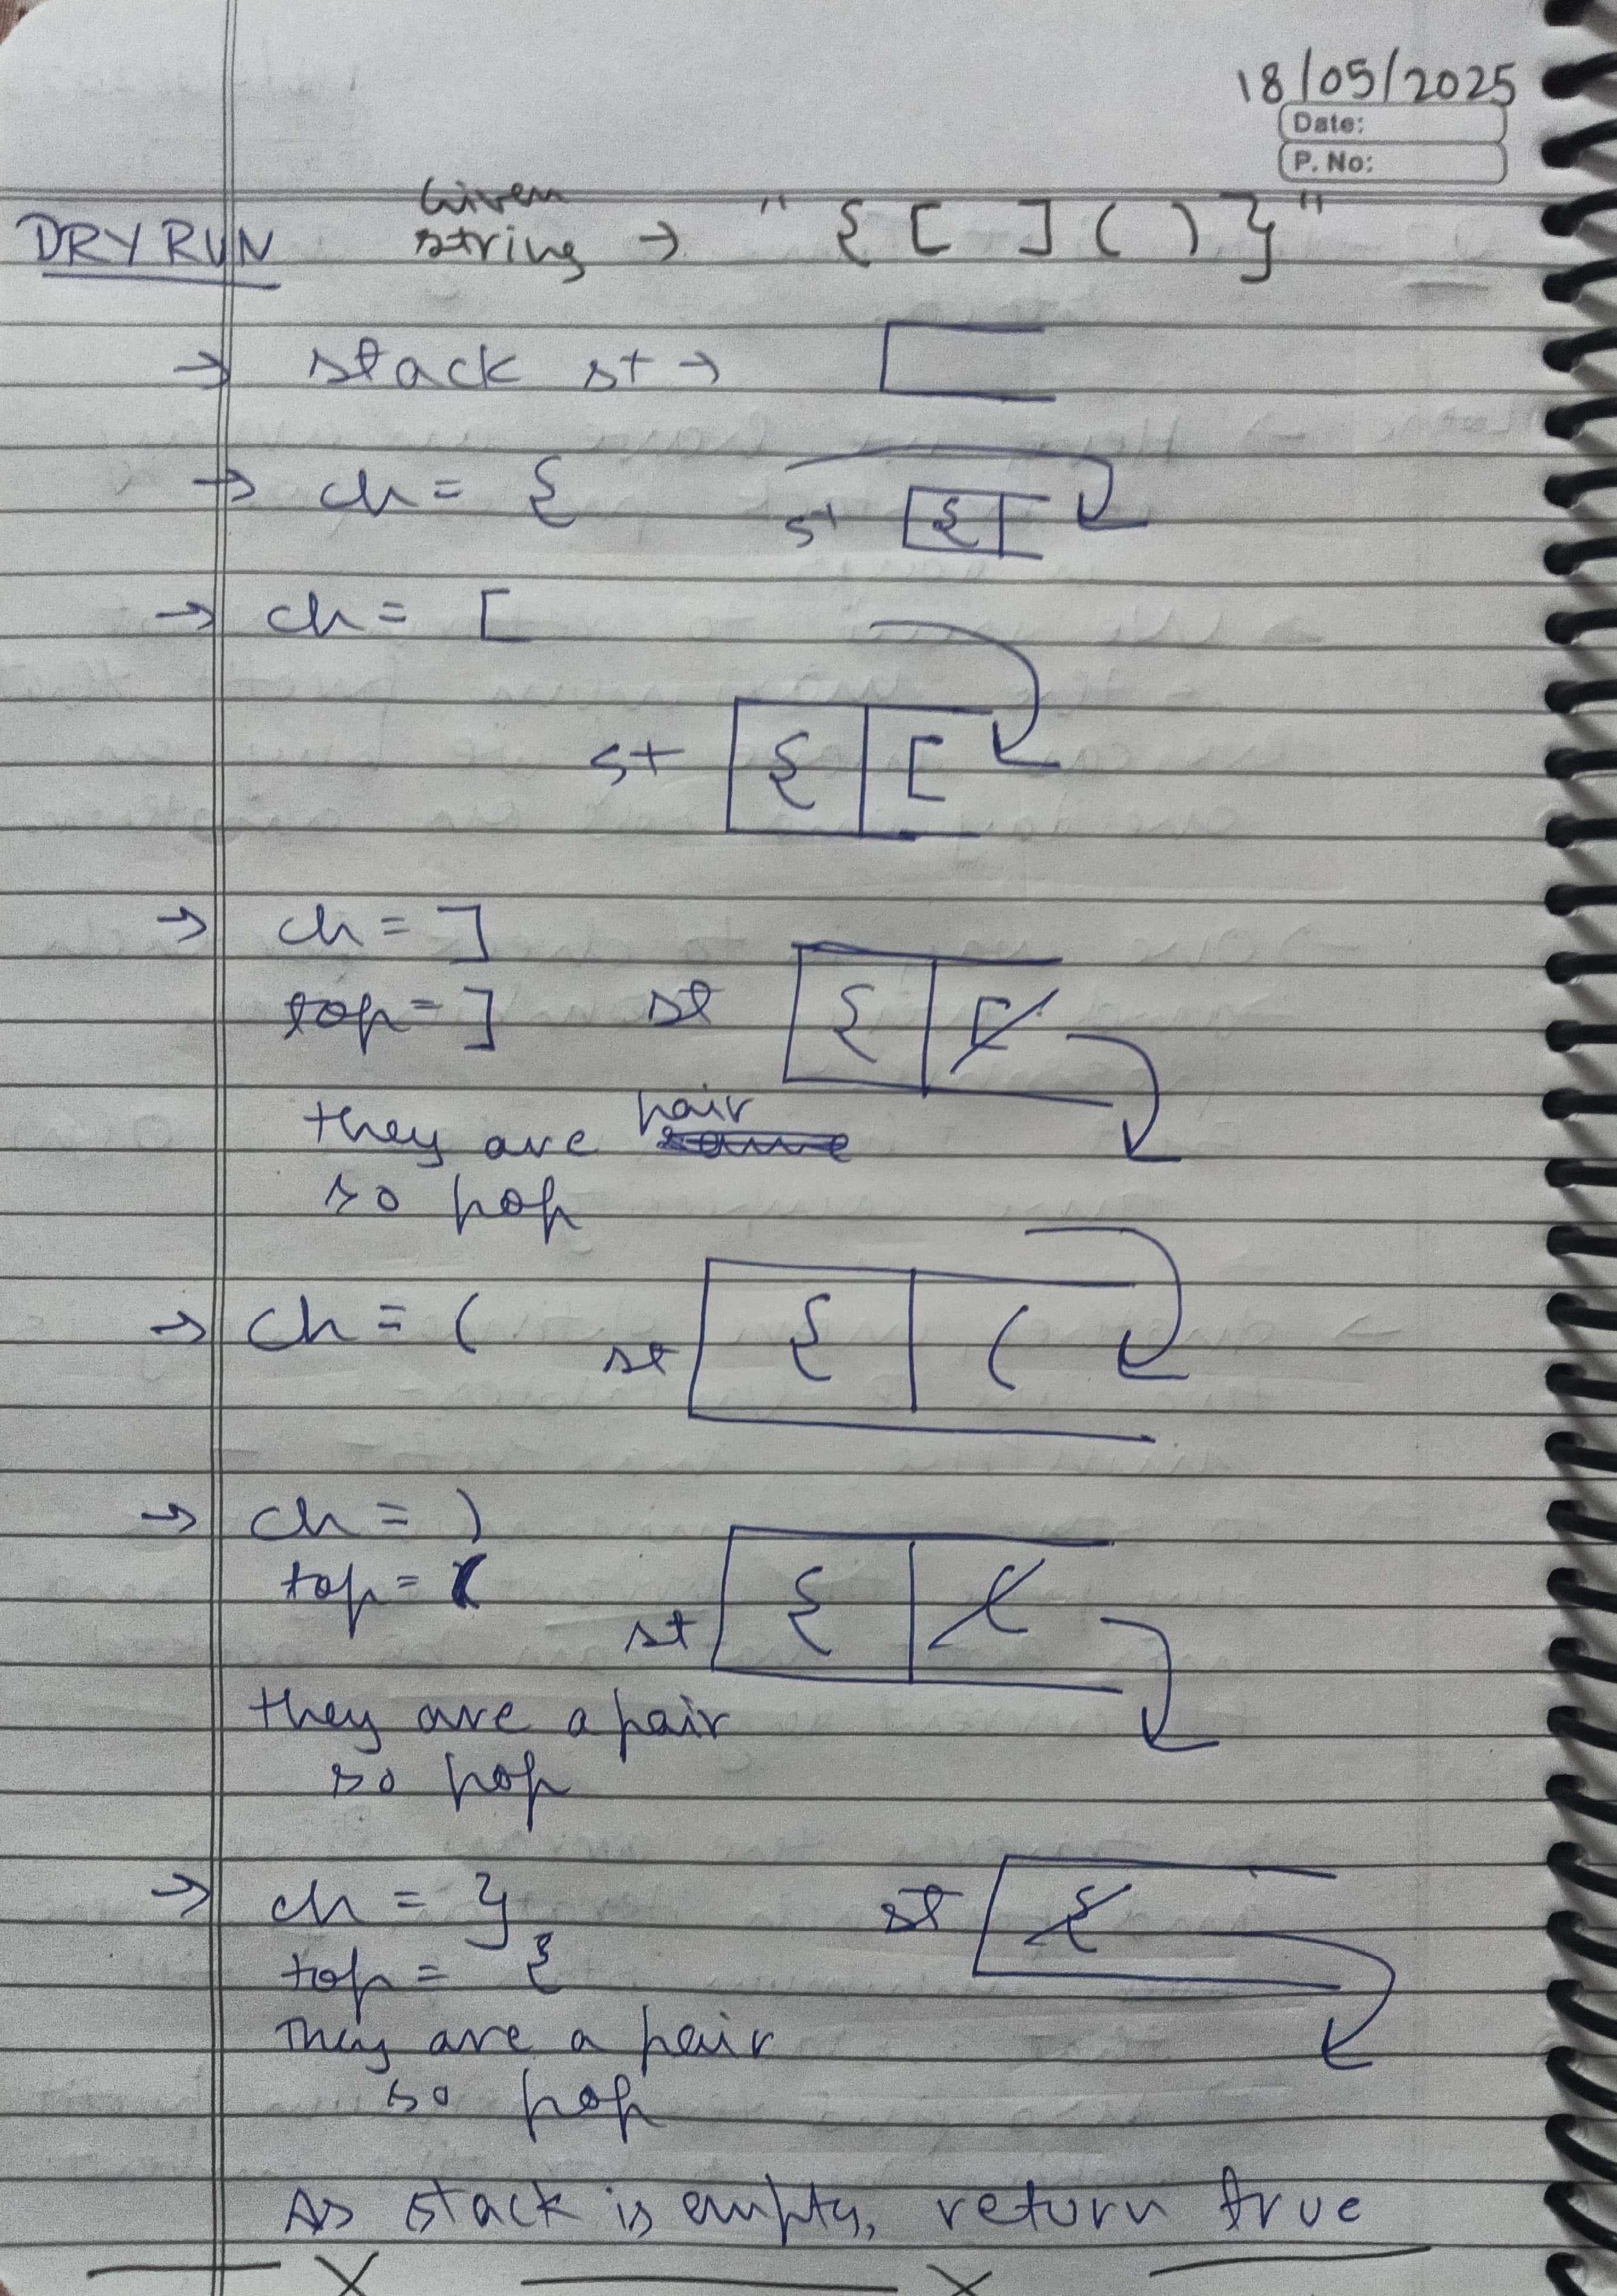 18/05/2025
Date:
P. No:
DRY RUN Given string → "{ [ ] ( ) }"
→ stack st →
→ ch = {
st {
→ ch = [
st { [
→ ch = ]
top = ] st { [
they are pair same
so pop
→ ch = ( st { (
→ ch = )
top = (
st { (
they are a pair
so pop
→ ch = } st {
top = {
They are a pair
so pop
As stack is empty, return true
X X